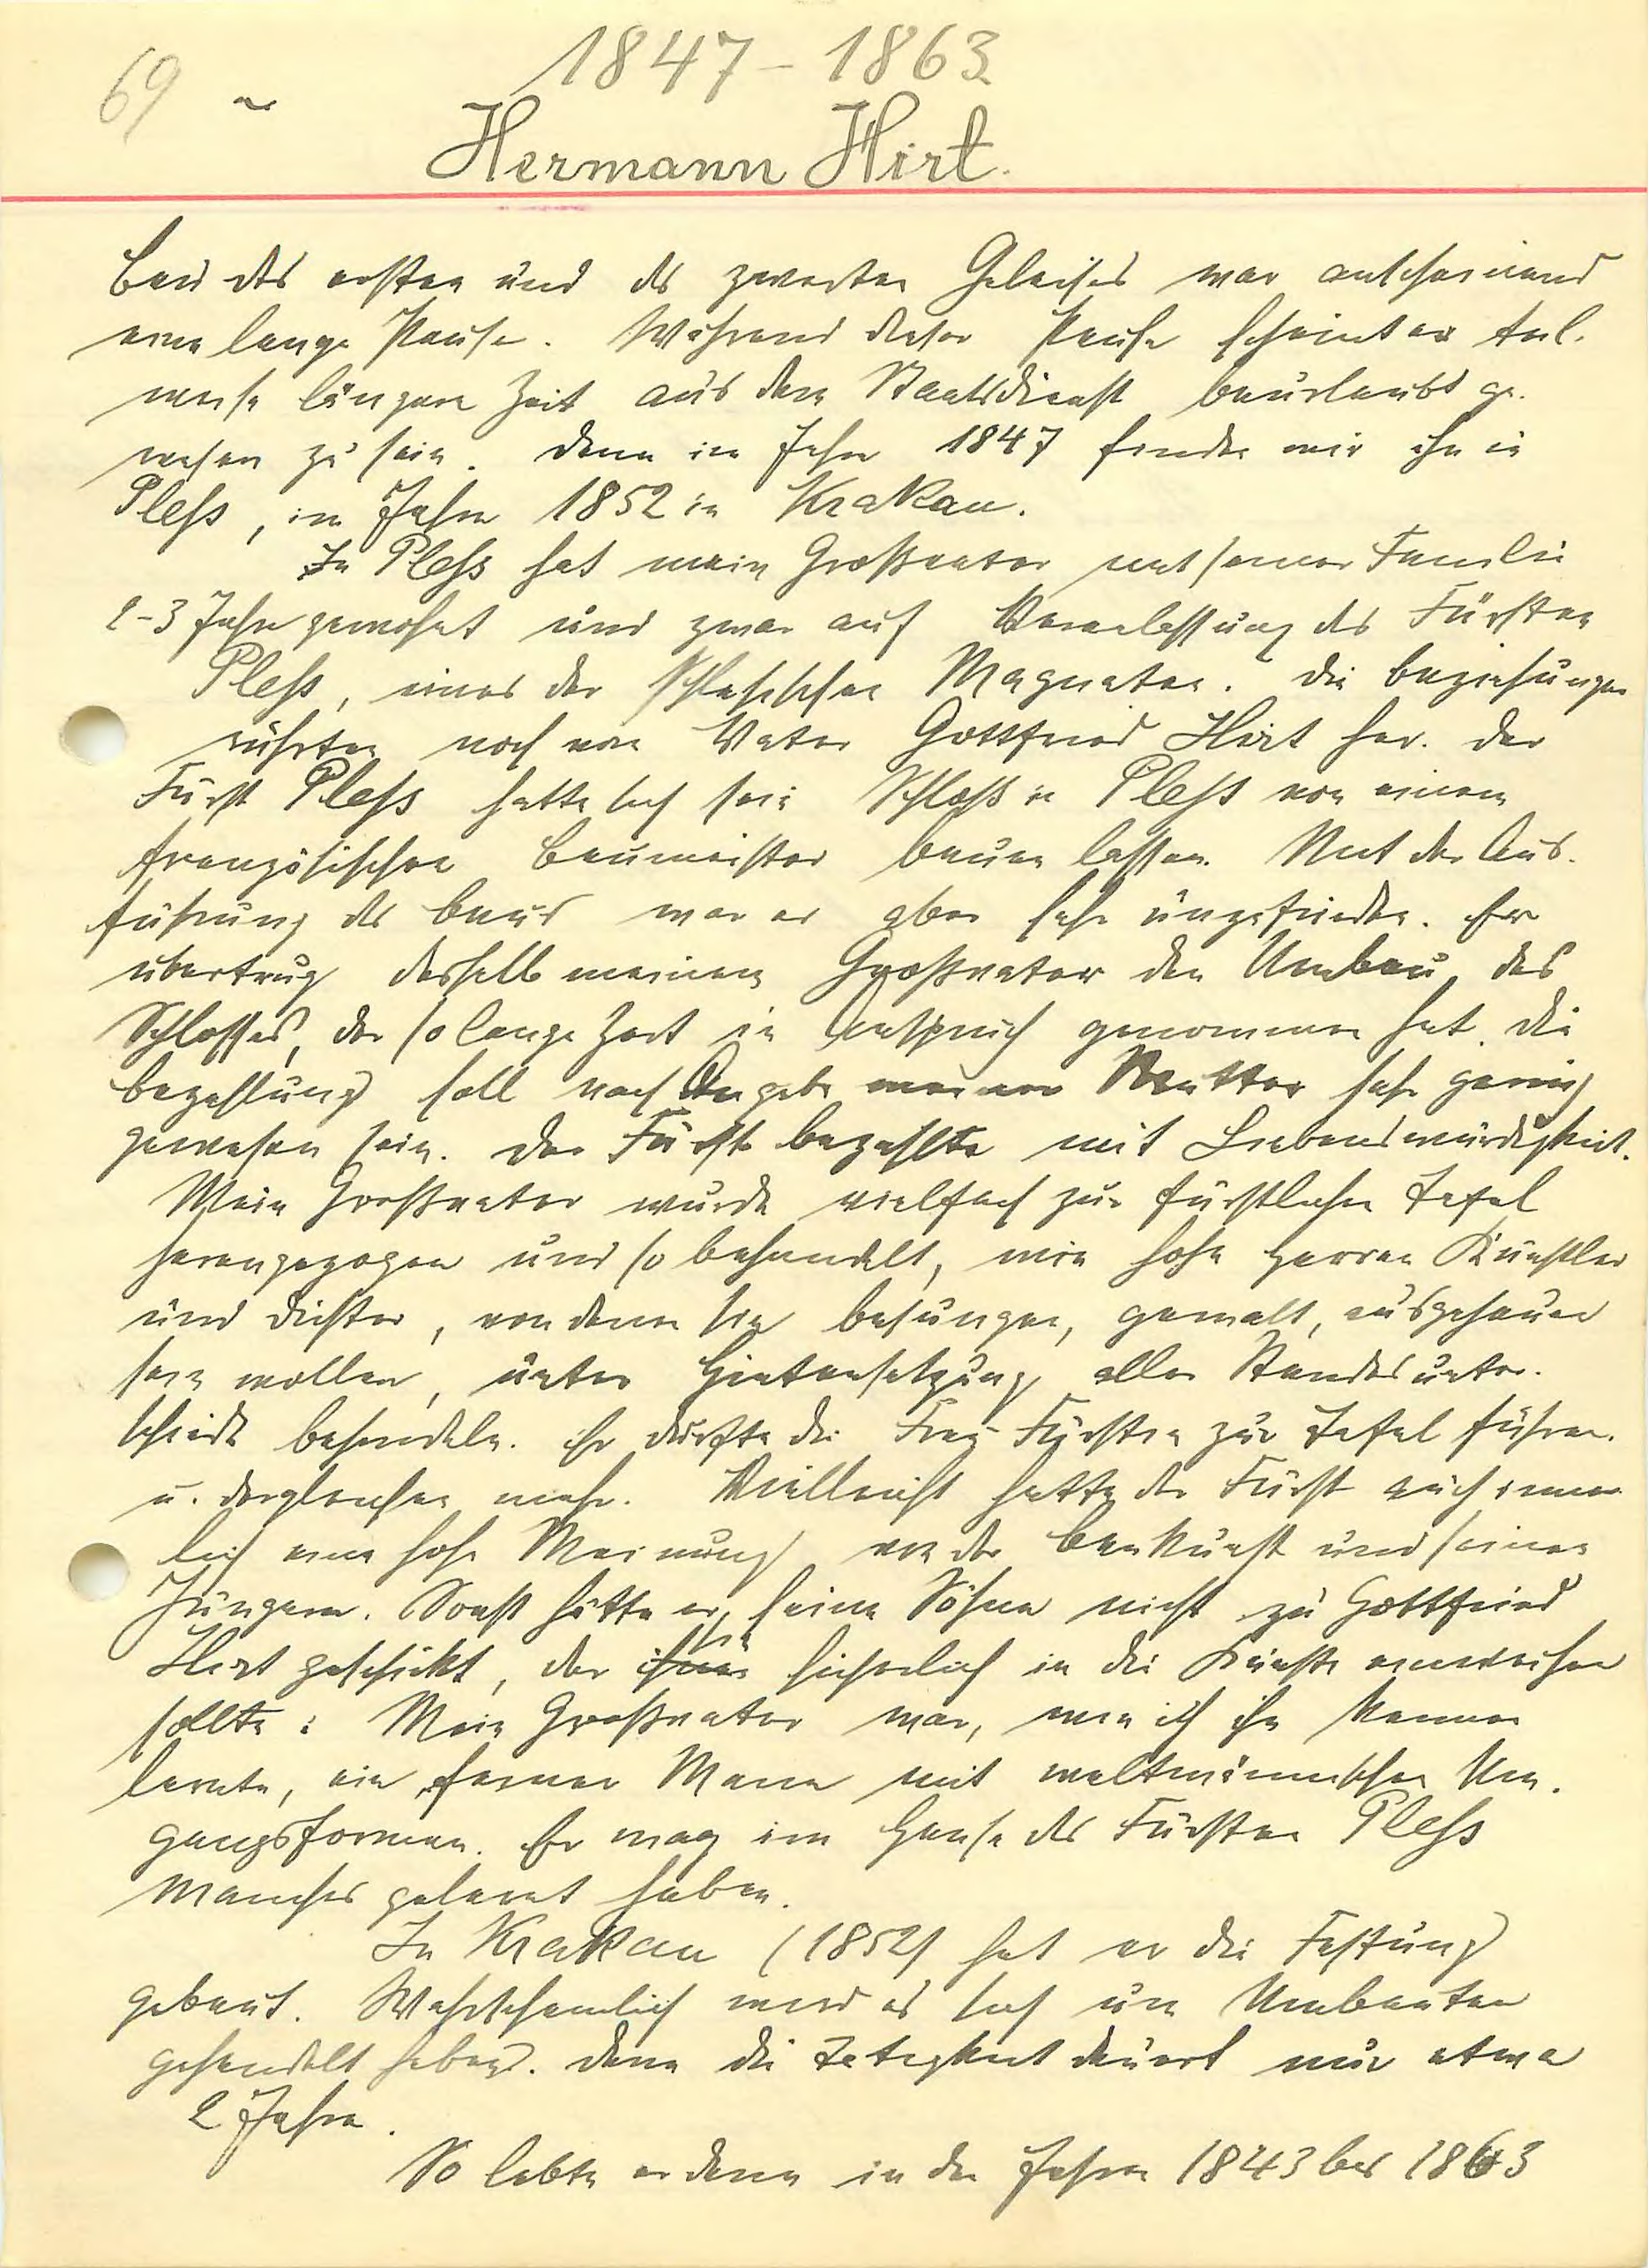 1847 - 1863
69 ~
Hermann Hirt.
Bau des ersten und des zweiten Geleises war anscheinend
eine lange Pause. Während dieser Pause scheint er teil-
weise längere Zeit aus dem Staatsdienst beurlaubt ge-
wesen zu sein. Denn im Jahre 1847 finden wir ihn in
Pless, im Jahre 1852 in Krakau.
In Pless hat mein Großvater mit seiner Familie
2-3 Jahre gewohnt und zwar auf Veranlassung des Fürsten
Pless, eines der schlesischen Magnaten. Die Beziehungen
rührten noch vom Vater Gottfried Hirt her. Der
Fürst Pless hatte sich sein Schloß in Pless von einem
französischen Baumeister bauen lassen. Mit der Aus-
führung des Baues war er aber sehr unzufrieden. Er
übertrug deshalb meinem Großvater den Umbau des
Schlosses, der so lange Zeit in Anspruch genommen hat. Die
Bezahlung soll nach Angabe meiner Mutter sehr gering
gewesen sein. Der Fürst bezahlte mit Liebenswürdigkeit.
Mein Großvater wurde vielfach zur fürstlichen Tafel
herangezogen und so behandelt, wie hohe Herren Künstler
und Dichter, von denen sie besungen, gemalt, ausgehauen
sein wollen, unter Hintansetzung aller Standesunter-
schiede behandeln. Er durfte die Frau Fürstin zur Tafel führen
u. dergleichen mehr. Vielleicht hatte der Fürst auch inner-
lich eine hohe Meinung von der Baukunst und seinen
Jüngern. Sonst hätte er seine Söhne nicht zu Gottfried
Hirt geschickt, der sie sicherlich in die Künste einweihen
sollte. Mein Großvater war, wie ich ihn kennen
lernte, ein feiner Mann mit weltmännischen Um-
gangsformen. Er mag im Hause des Fürsten Pless
manches gelernt haben.
In Krakau (1852) hat er die Festung
gebaut. Wahrscheinlich wird es sich um Umbauten
gehandelt haben. Denn die Tätigkeit dauert nur etwa
2 Jahre.
So lebte er denn in den Jahren 1843 bis 1863